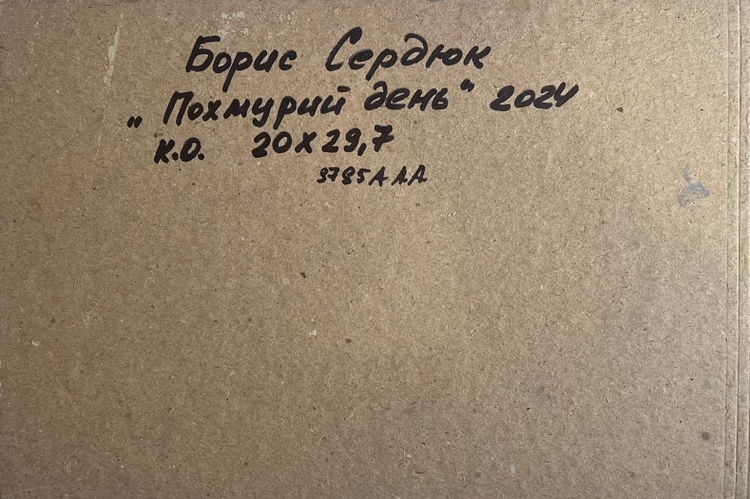 Борис Сердюк
„Похмурий день" 2024
К.О. 20х29,7
9785ААА